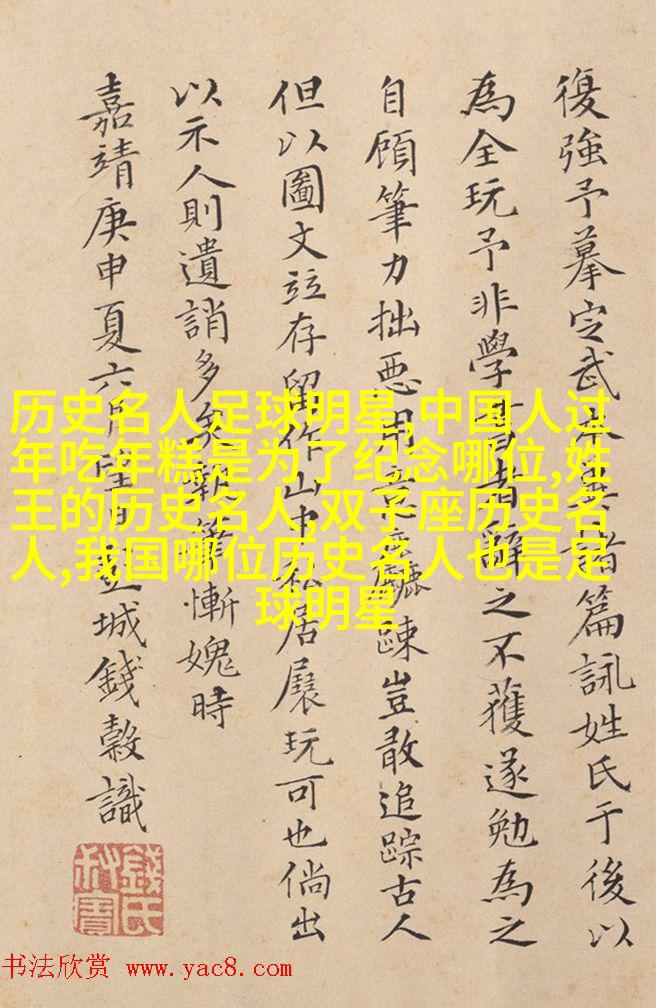 復強予摹定武本諸篇詠姓氏于後以
為全玩予非學書者辭之不獲遂勉為之
自顧筆力拙惡用意麤踈豈敢追踪古人
但以圖文竝存留作山中私居展玩可也倘出
以示人則遺誚多矣執筆慚媿時
嘉靖庚申夏六月望日彭城錢穀識
錢氏
叔寶
历史名人足球明星,中国人过
年吃年糕是为了纪念哪位,姓
王的历史名人,双子座历史名
人,我国哪位历史名人也是足
球明星
书法欣赏 www.yac8.com